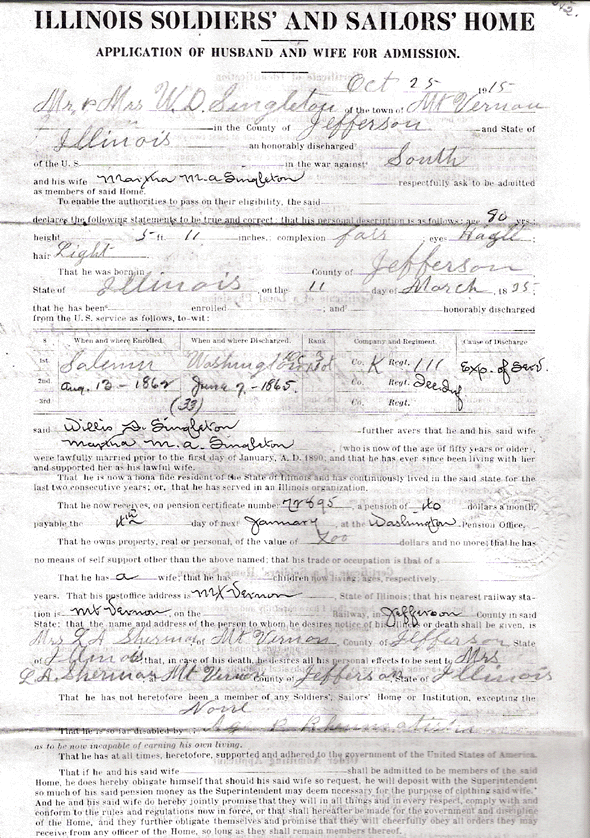 ILLINOIS SOLDIERS' AND SAILORS' HOME
APPLICATION OF HUSBAND AND WIFE FOR ADMISSION.
Oct 25 1915
Mr. & Mrs W.D. Singleton of the town of Mt Vernon
in the County of Jefferson and State of
Illinois an honorably discharged
of the U. S. in the war against South
and his wife Martha M. A. Singleton respectfully ask to be admitted
as members of said Home.
To enable the authorities to pass on their eligibility, the said
declares the following statements to be true and correct; that his personal description is as follows: age 80 yrs.;
height 5 ft. 11 inches, complexion fair, eyes Hazle;
hair Light
That he was born in County of Jefferson,
State of Illinois, on the 11 day of March, 1835;
that he has been enrolled ; and honorably discharged
from the U. S. service as follows, to-wit:
S When and where Enrolled. When and where Discharged. Rank Company and Regiment. Cause of Discharge
1st Salem Washington Co. K Regt. 111 Exp. of Serv.
2nd Aug. 13 - 1862 June 7 - 1865. Co. Regt. Ills. Inf
3rd (33) Co. Regt.
said Willis D. Singleton further avers that he and his wife
Martha M. A. Singleton, who is now of the age of fifty years or older,
were lawfully married prior to the first day of January, A. D. 1890; and that he has ever since been living with her
and supported her as his lawful wife.
That he is now a bona fide resident of the State of Illinois and has continuously lived in the said state for the
last two consecutive years; or, that he has served in an Illinois organization.
That he now receives, on pension certificate number 77895, a pension of dollars a month,
payable the 4th day of next January, at the Washington Pension Office,
That he owns property, real or personal, of the value of dollars and no more; that he has
no means of self support other than the above named; that his trade or occupation is that of a
That he has a wife; that he has children now living; ages, respectively,
years. That his postoffice address is Mt Vernon, State of Illinois; that his nearest railway sta-
tion is Mt Vernon, on the Railway, in Jefferson County in said
State; that the name and address of the person to whom he desires notice of his illness or death shall be given, is
Mrs L A Sherman of Mt Vernon, County of Jefferson State
of Illinois that, in case of his death, he desires all his personal effects to be sent to Mrs
L A. Sherman Mt Vernon County of Jefferson State of Illinois
That he has not heretofore been a member of any Soldiers', Sailors' Home or Institution, excepting the
None
That he is so far disabled by Age & Rheumatism
as to be now incapable of earning his own living.
That he has at all times, heretofore, supported and adhered to the government of the United States of America.
That if he and his said wife shall be admitted to be members of the said
Home, he does hereby obligate himself that should his said wife so request, he will deposit with the Superintendent
so much of his said pension money as the Superintendent may deem necessary for the purpose of clothing said wife.
And he and his said wife do hereby jointly promise that they will in all things and in every respect, comply with and
conform to the rules and regulations now in force, or that shall hereafter be made for the government and discipline
of the Home, and they further obligate themselves and promise that they will cheerfully obey all orders they may
receive from any officer of the Home, so long as they shall remain members thereof.